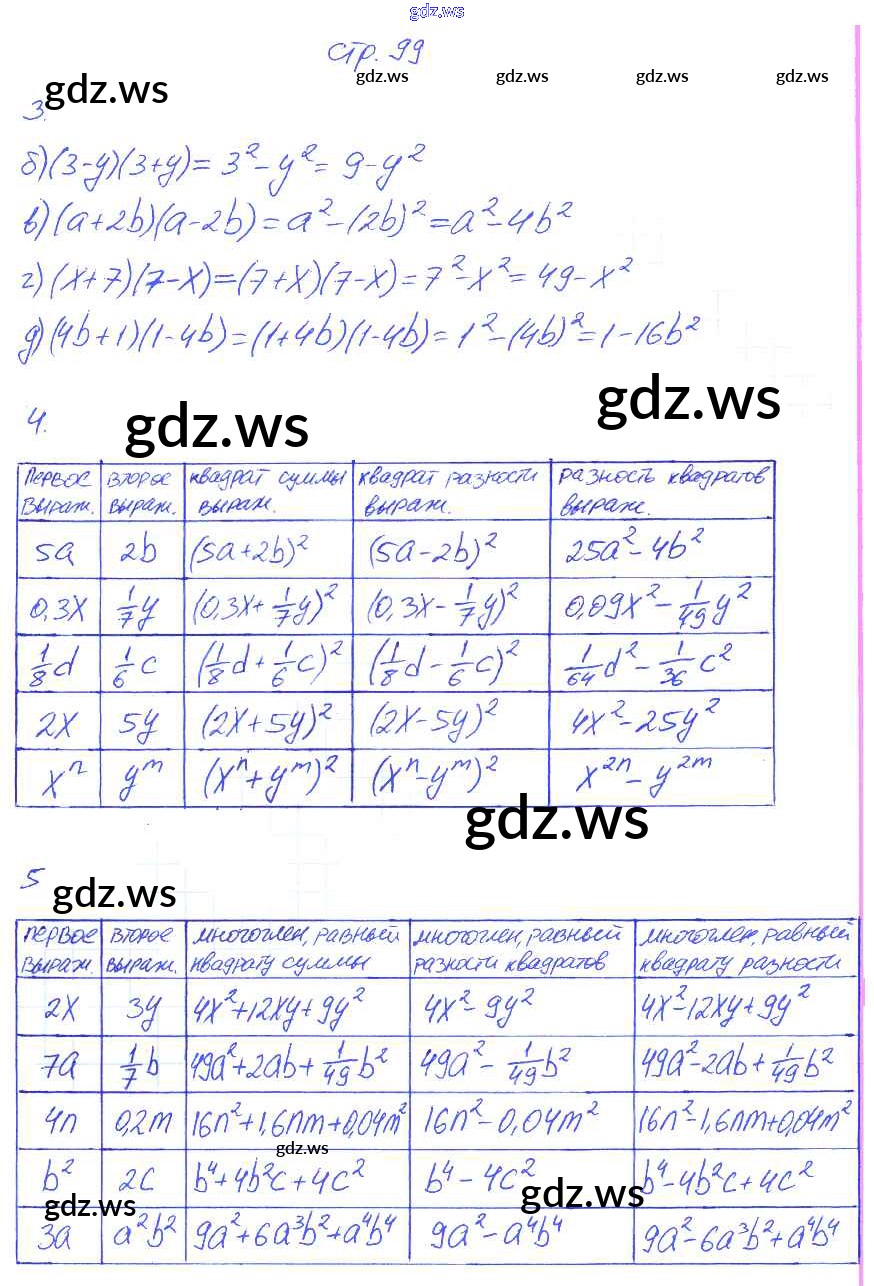 gdz.ws
стр. 99
gdz.ws gdz.ws gdz.ws gdz.ws
gdz.ws
3.
б) (3-y)(3+y) = 3² - y² = 9 - y²
в) (a+2b)(a-2b) = a² - (2b)² = a² - 4b²
г) (x+7)(7-x) = (7+x)(7-x) = 7² - x² = 49 - x²
д) (4b+1)(1-4b) = (1+4b)(1-4b) = 1² - (4b)² = 1 - 16b²
gdz.ws
4.
gdz.ws
первое выраж. | второе выраж. | квадрат суммы выраж. | квадрат разности выраж. | разность квадратов выраж.
5a | 2b | (5a+2b)² | (5a-2b)² | 25a² - 4b²
0,3x | 1/7 y | (0,3x + 1/7 y)² | (0,3x - 1/7 y)² | 0,09x² - 1/49 y²
1/8 d | 1/6 c | (1/8 d + 1/6 c)² | (1/8 d - 1/6 c)² | 1/64 d² - 1/36 c²
2x | 5y | (2x+5y)² | (2x-5y)² | 4x² - 25y²
xⁿ | yᵐ | (xⁿ+yᵐ)² | (xⁿ-yᵐ)² | x²ⁿ - y²ᵐ
gdz.ws
5
gdz.ws
первое выраж. | второе выраж. | многочлен, равный квадрату суммы | многочлен, равный разности квадратов | многочлен, равный квадрату разности
2x | 3y | 4x²+12xy+9y² | 4x² - 9y² | 4x²-12xy+9y²
7a | 1/7 b | 49a²+2ab+1/49 b² | 49a² - 1/49 b² | 49a²-2ab+1/49 b²
4n | 0,2m | 16n²+1,6nm+0,04m² | 16n² - 0,04m² | 16n²-1,6nm+0,04m²
gdz.ws
b² | 2c | b⁴+4b²c+4c² | b⁴ - 4c² | b⁴-4b²c+4c²
gdz.ws gdz.ws
3a | a²b² | 9a²+6a³b²+a⁴b⁴ | 9a² - a⁴b⁴ | 9a²-6a³b²+a⁴b⁴